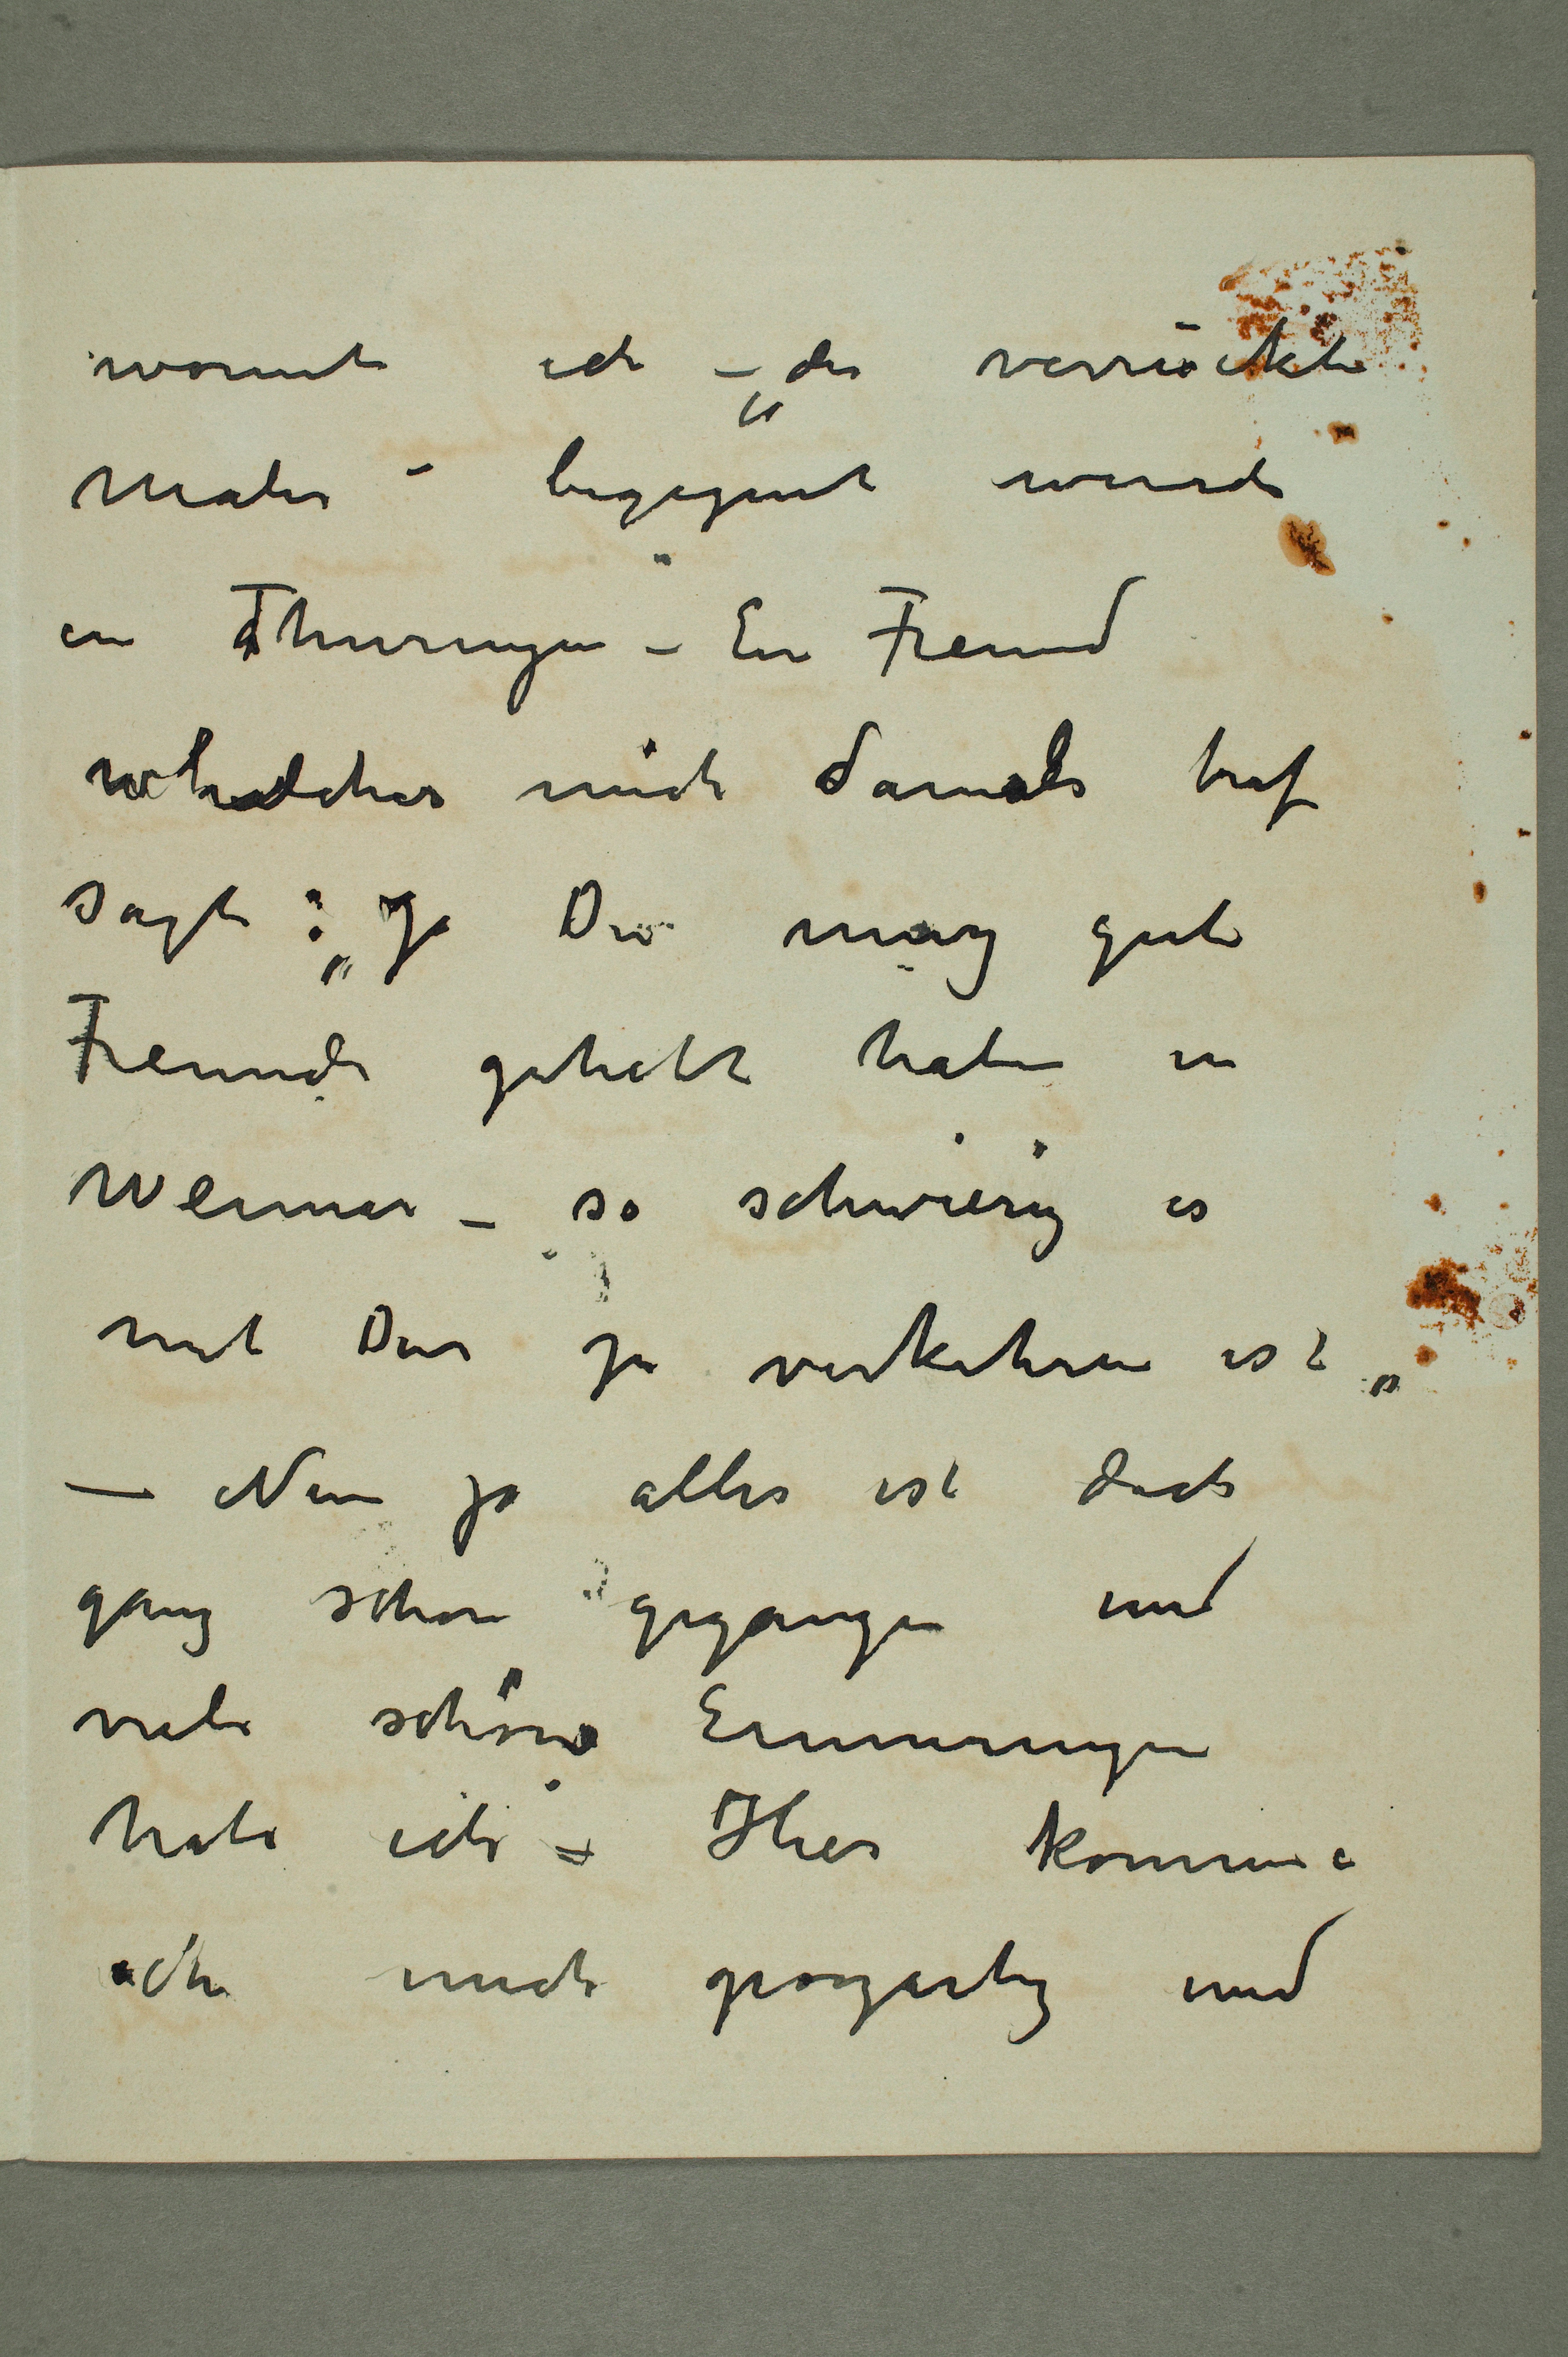 womit ich – „der verrückte
Maler“ – begegnet wurde
in Thüringen – Ein Freund
whelcher mich damals traf
sagte: „Ja Du mag gute
Freunde gehabt haben in
Weimar – so schwierig es
mit Dir zu verkehren ist“
– Nun ja alles ist doch
ganz schön gegangen und
viele schöne Erinnerungen
habe ich – Hier komme
ich mich grozartig und